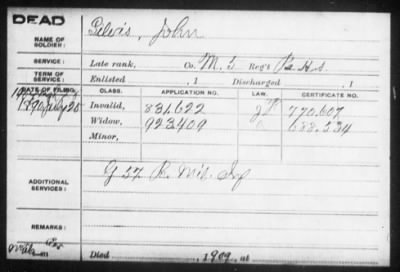 DEAD
NAME OF SOLDIER: Bilvis, John
SERVICE: Late rank, Co. M. 5 Reg't Pa H.A.
TERM OF SERVICE: Enlisted , 1 Discharged , 1
DATE OF FILING. CLASS. APPLICATION NO. LAW. CERTIFICATE NO.
1890 July 25 Invalid, 831.622 770.607
Widow, 923.409 688.534
Minor,
ADDITIONAL SERVICES: G 57 Pa. Mil. Inf
REMARKS:
Died , 1909, at